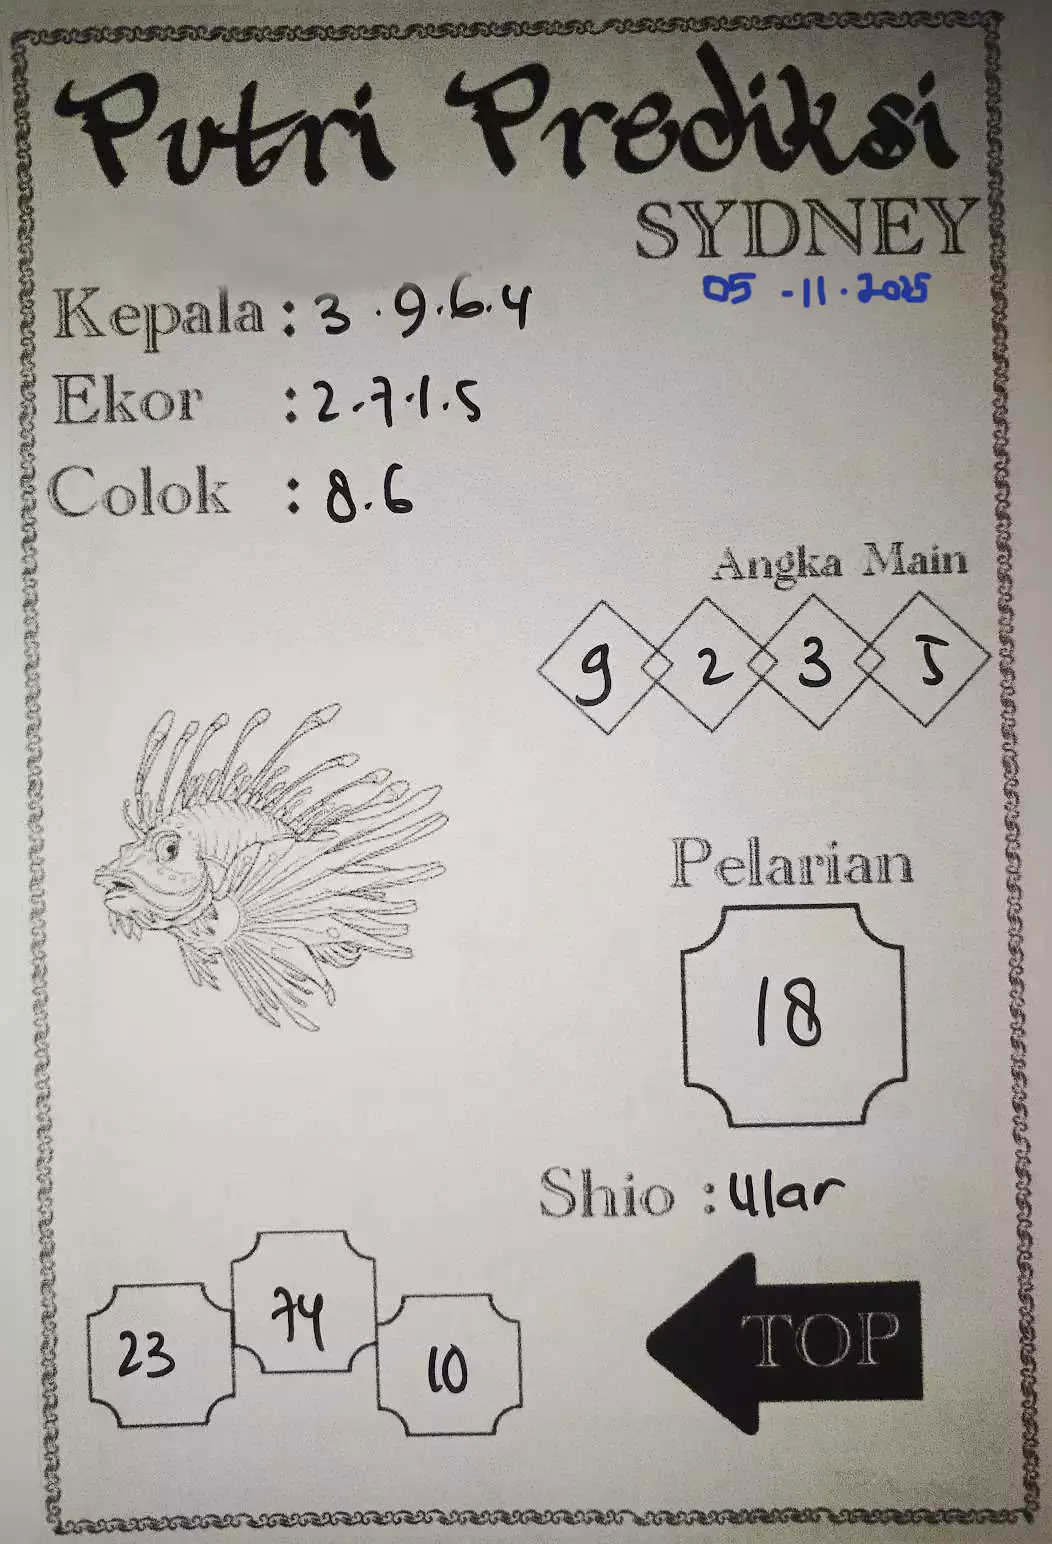 Putri Prediksi
SYDNEY
05 - 11 . 2025
Kepala : 3 . 9 . 6 . 4
Ekor : 2 . 7 . 1 . 5
Colok : 8 . 6
Angka Main
9 2 3 5
Pelarian
18
Shio : Ular
23 74 10
TOP